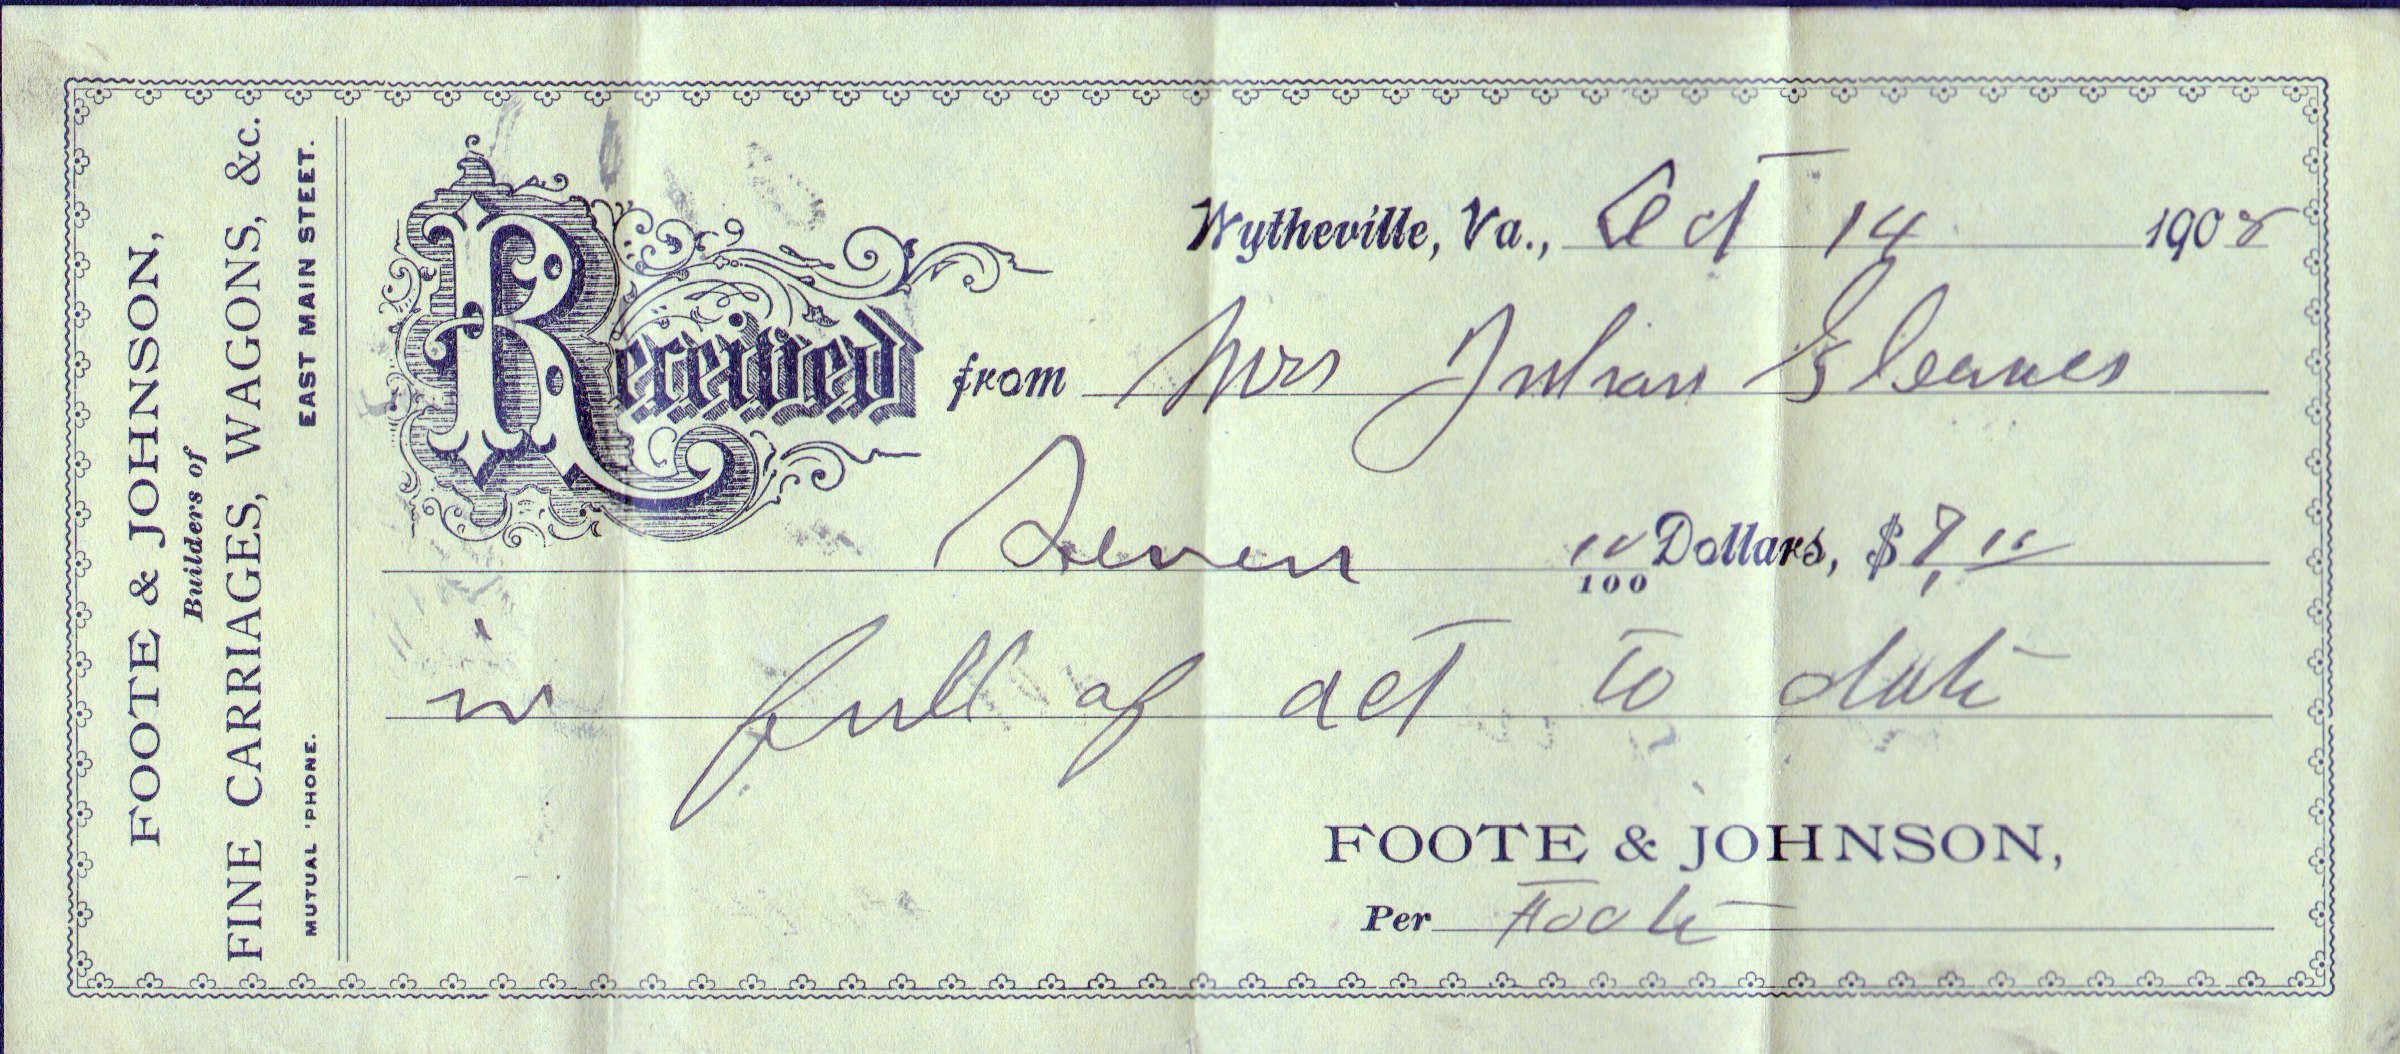 FOOTE & JOHNSON,
Builders of
FINE CARRIAGES, WAGONS, &c.
MUTUAL 'PHONE. EAST MAIN STEET.
Wytheville, Va., Oct 14 1908
Received from Mrs Julian Gleaves
Seven 00/100 Dollars, $7.00
in full of act to date
FOOTE & JOHNSON,
Per Foote